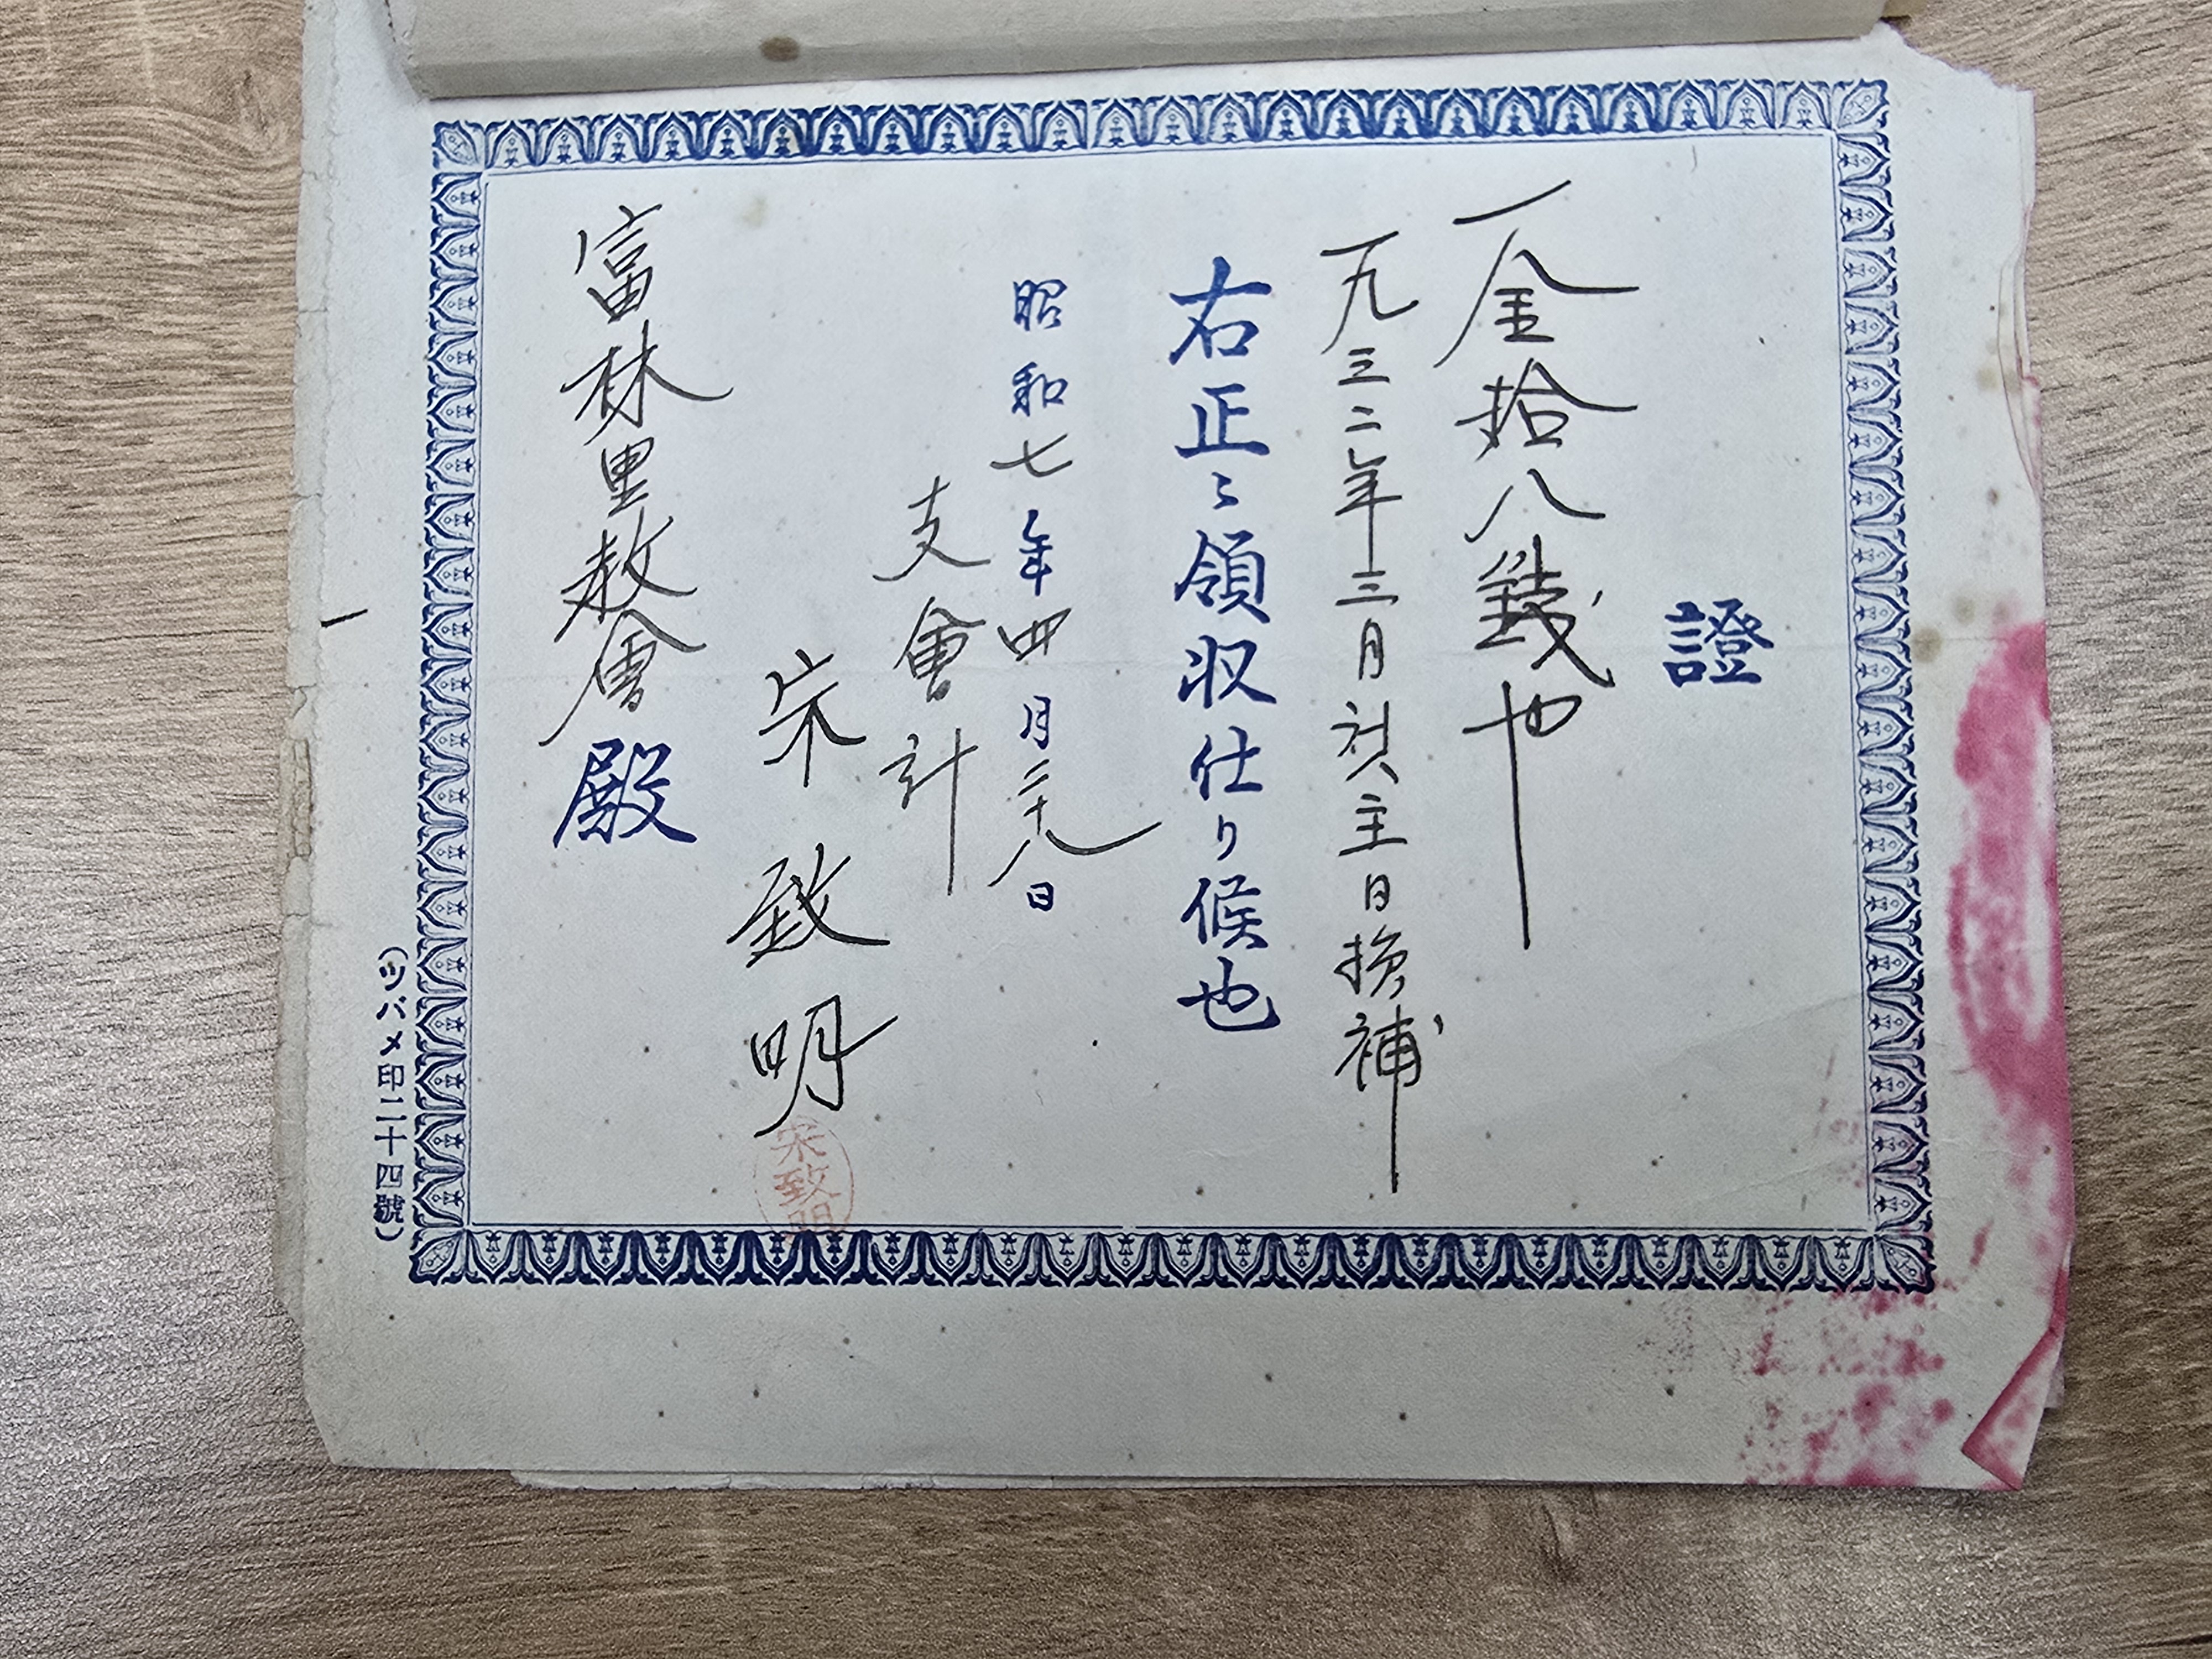 證
一金拾八錢也
一九三二年三月 主日捐補
右正ニ領収仕リ候也
昭和七年四月二十八日
支會計
宋致明
宋致明
富林里教會殿
(ツバメ印二十四號)